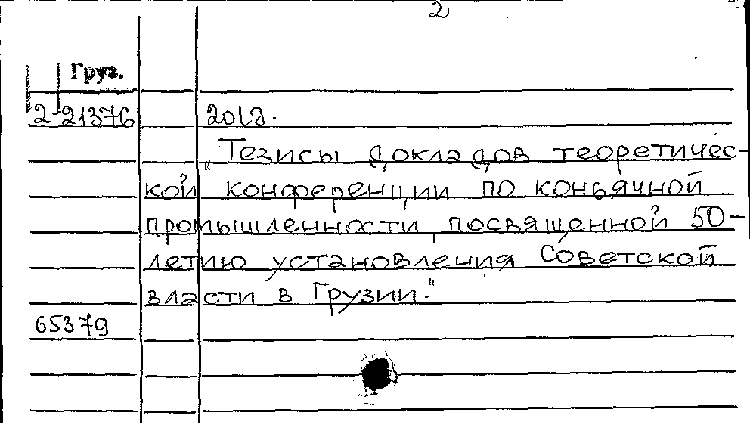 2
Груз.
2-21376
„Тезисы докладов теоретичес-
кой конференции по коньячной
промышленности, посвященной 50-
летию установления Советской
власти в Грузии."
65379